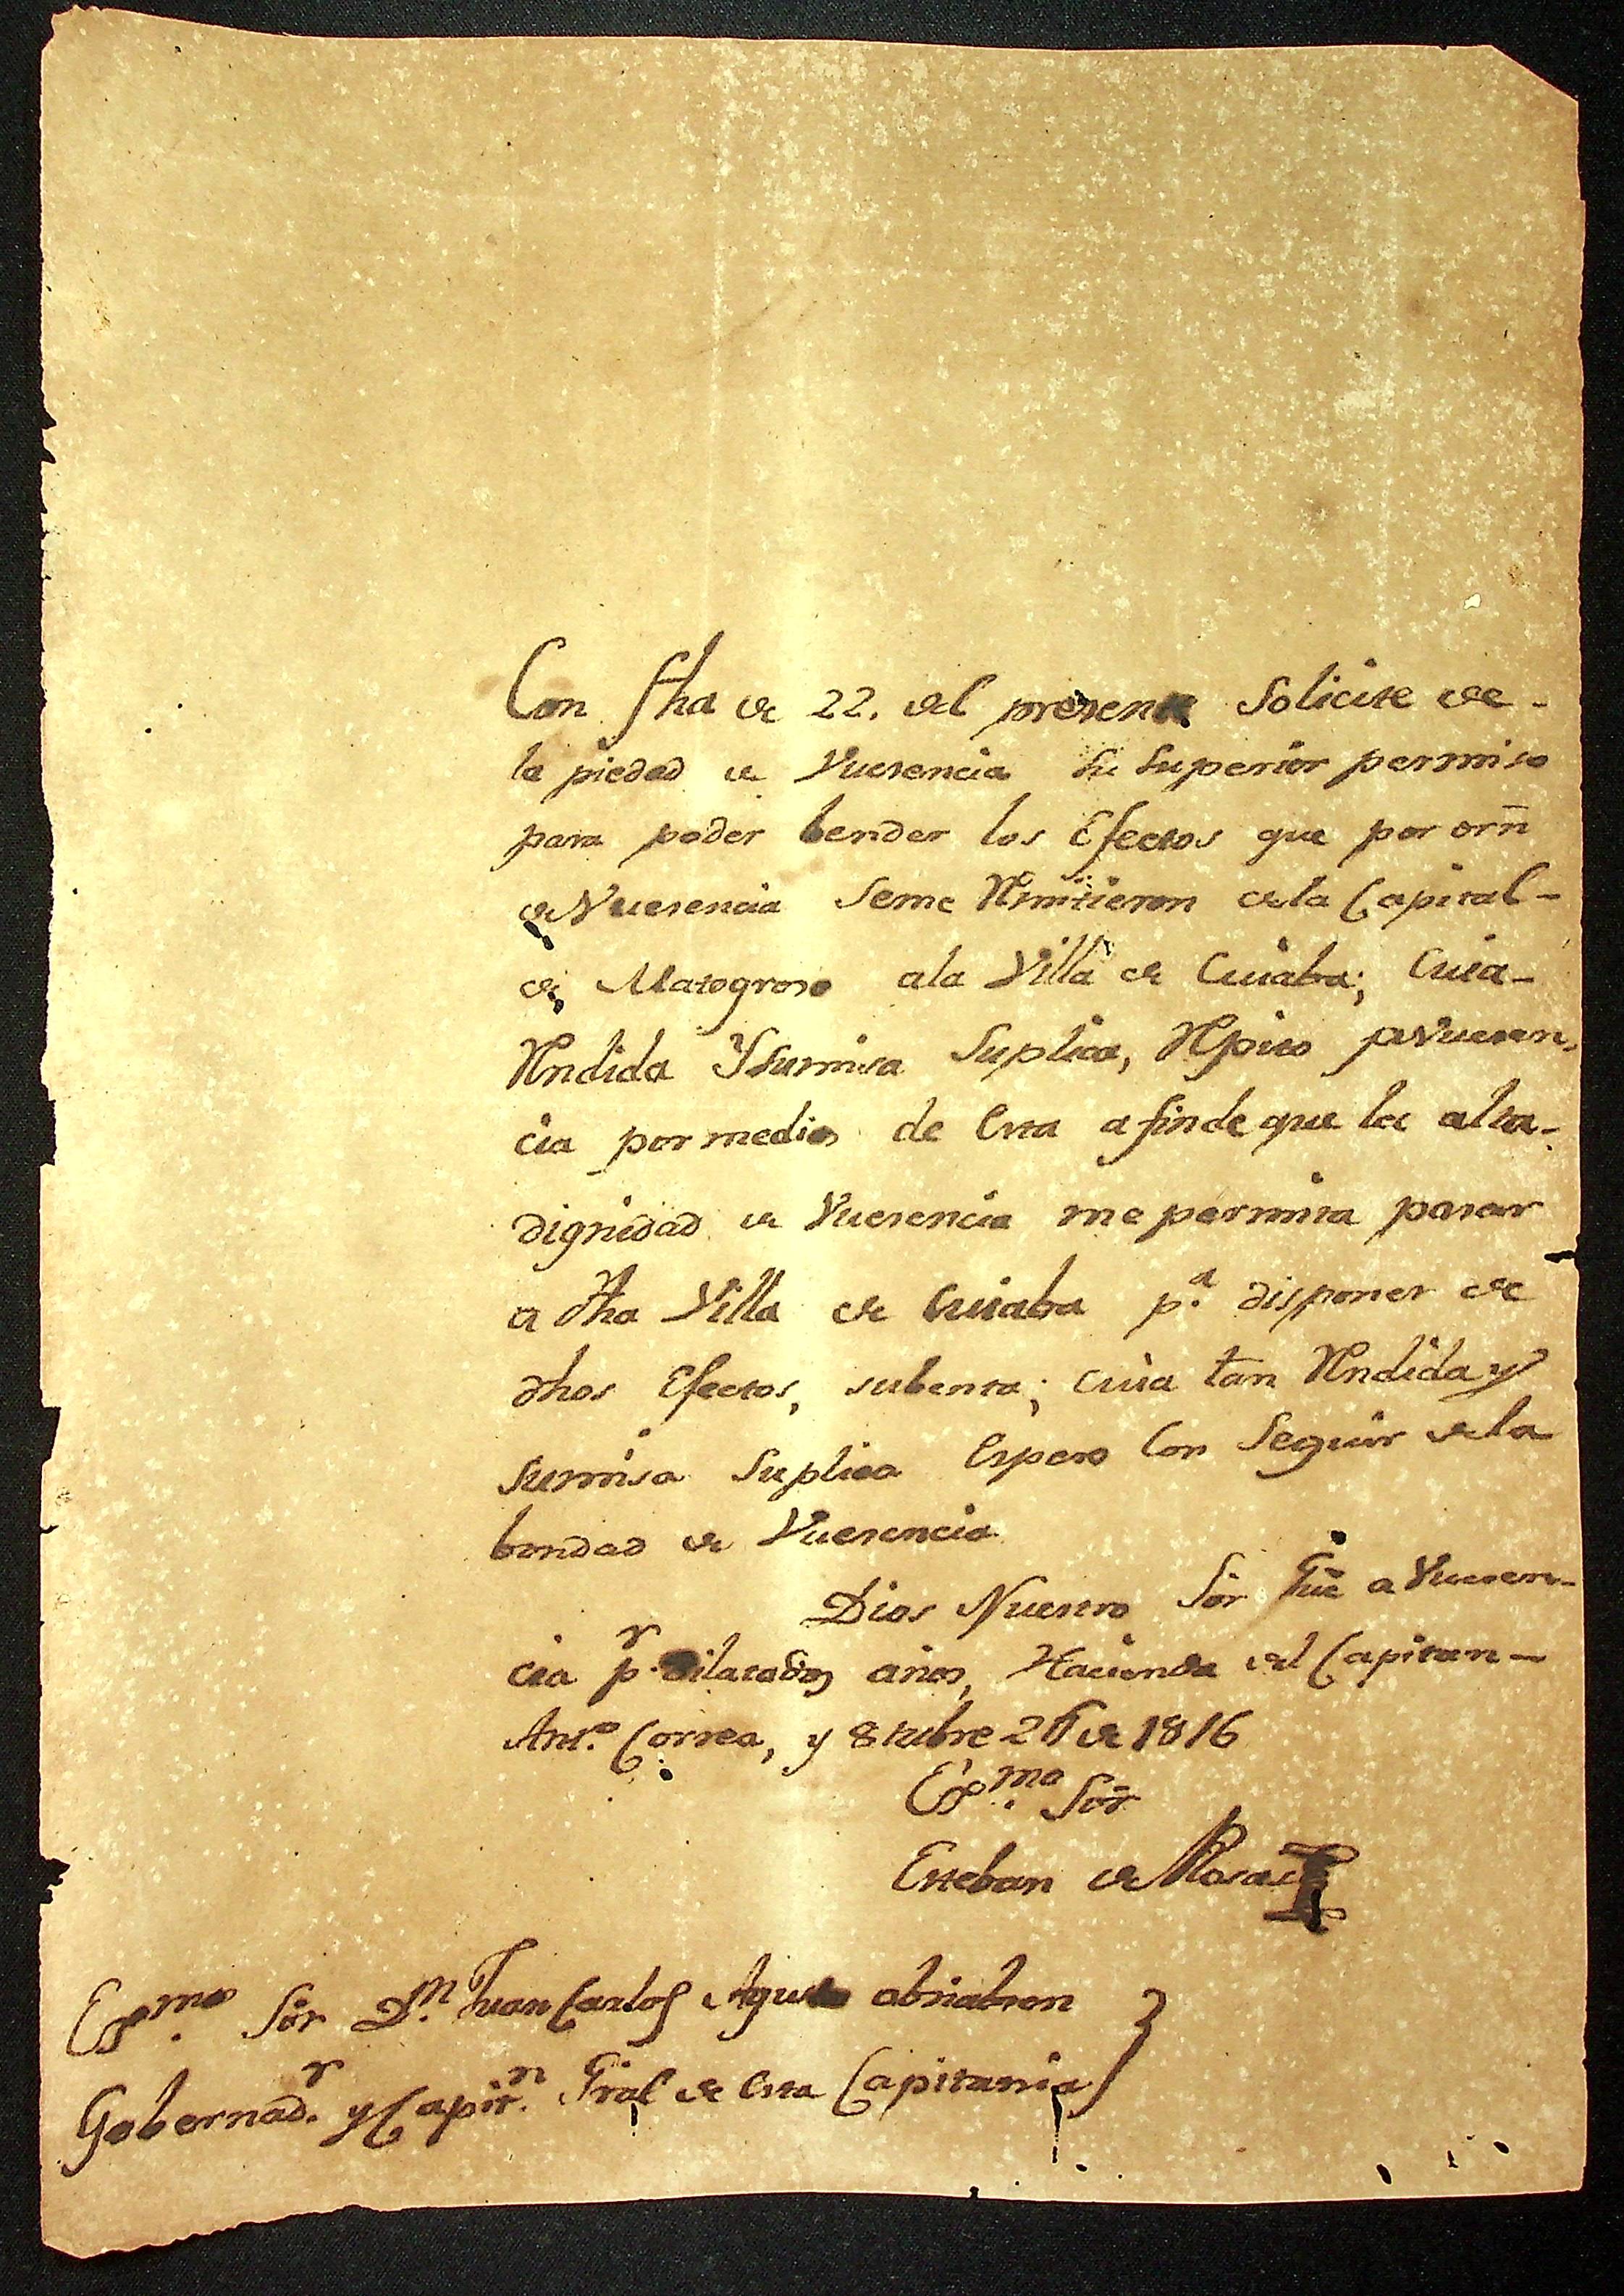 Con fha de 22. del presente Solicite de-
la piedad de Vuesencia su Superior permiso
para poder bender los Efectos que por orn̄
de Vuesencia Seme Rmitieron dela Capital-
de Matogroso ala Villa de Cuiaba; Cuia-
Rndida Ysumisa Suplica, Rpito aVuesen-
cia por medio de Esta afinde que la alta-
dignidad de Vuesencia me permita pasar
a dha Villa de Cuiaba p.ª disponer de
dhos Efectos, subenta; cuia tan Rndida y
sumisa Suplica Espero Con Seguir dela
bondad de Vuesencia
Dios Nuestro Sōr gūe a Vuesen-
cia p.r dilatados años, Hacienda del Capitan-
Ant.º Correa, y 8tubre de 1816
Ex.mo Sōr
Esteban de Rosas
Ex.mo Sōr D.n Juan Carlos Agusto
Gobernad.r y Capit.n Gral de Esta Capitania